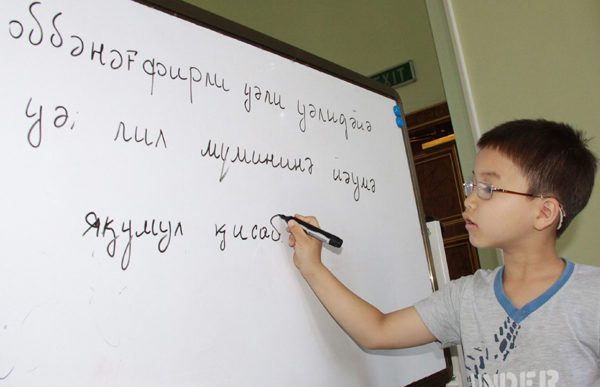 әббәнәғфирли уәли уәлидәйә
уә лил мүмининә йәумә
яқумул қисаб
EXIT
UNDER